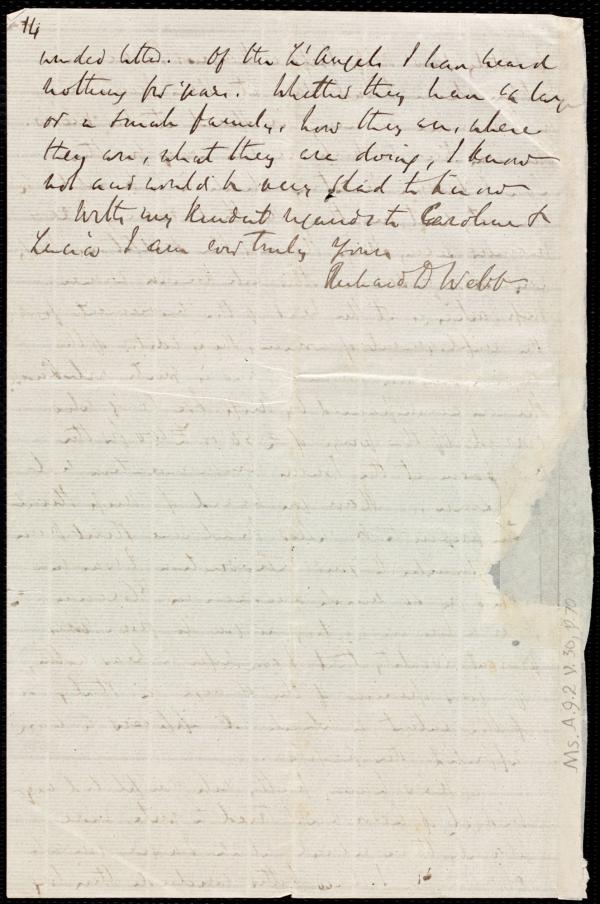 14
worded letter. Of the L'Angels I have heard
nothing for years. Whether they have a large
or a small family, how they are, where
they are, what they are doing, I know
not and would be very glad to know
With my kindest regards to Caroline &
I am ever truly Yours
Richard D Webb.
Ms. A.9.2 v. 30, p. 70